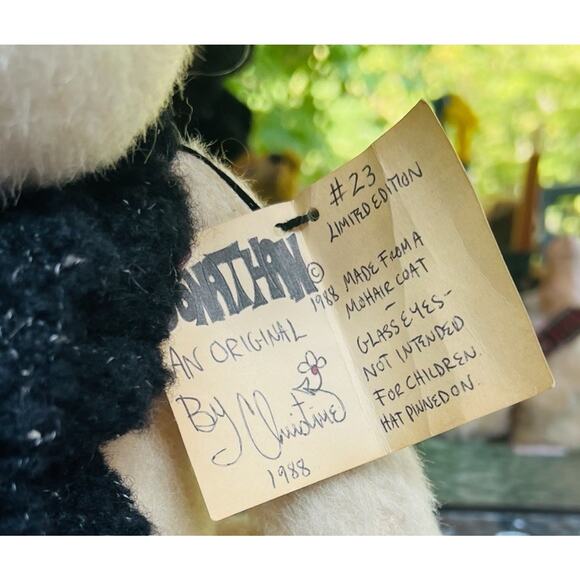 JONATHAN ©
1988
AN ORIGINAL
By Christine
1988
#23
LIMITED EDITION
—
MADE FROM A
MOHAIR COAT
—
GLASS EYES-
NOT INTENDED
FOR CHILDREN.
HAT PINNED ON.